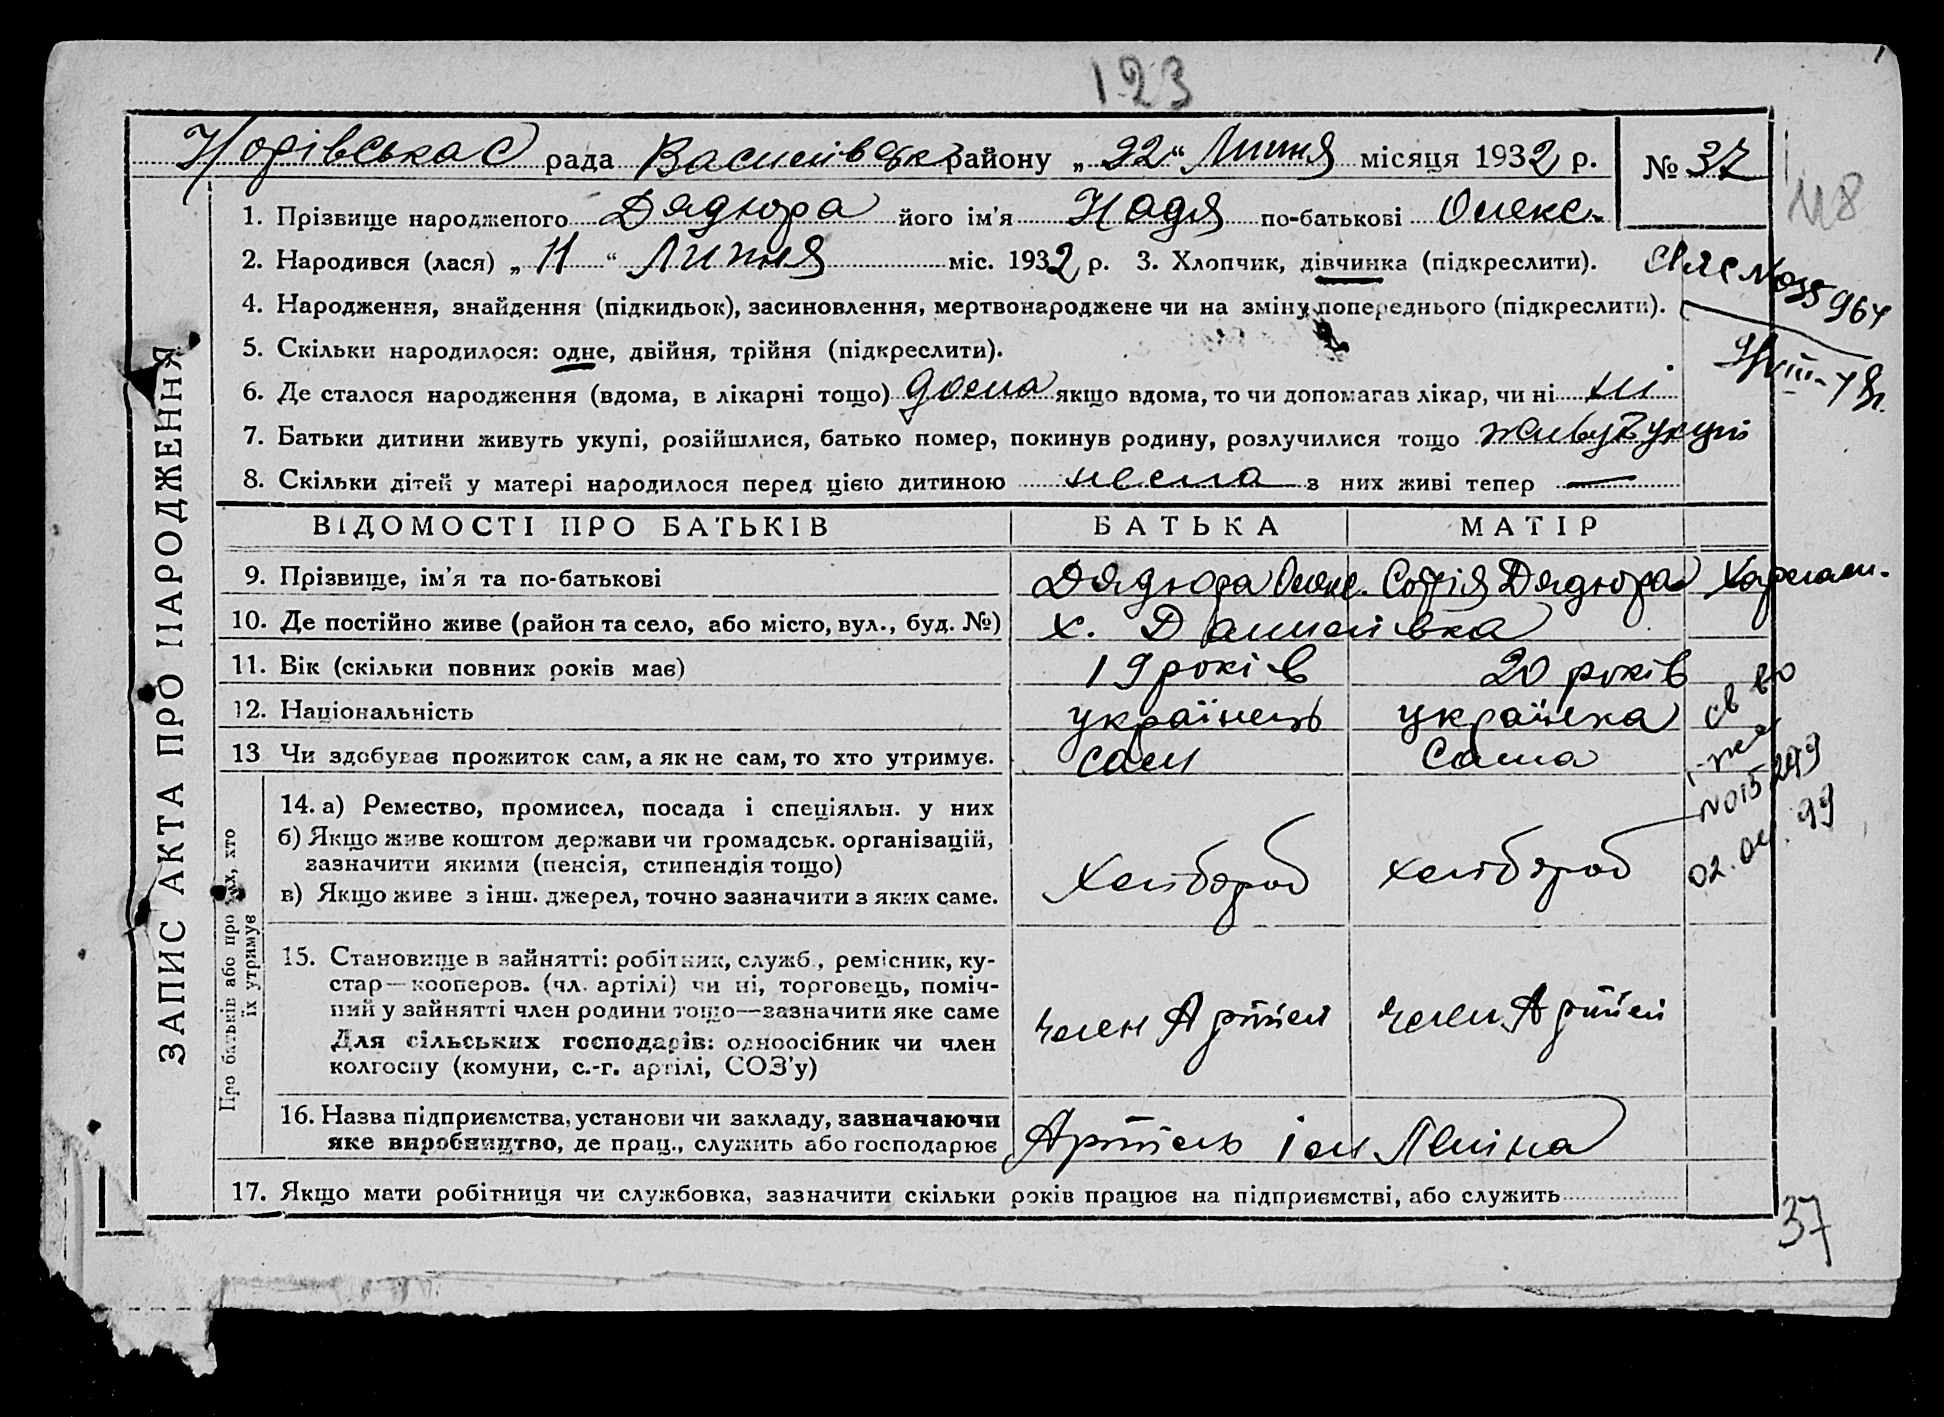 123
рада Васильівськ району „22“ Липня місяця 1932 р. № 37
118
1. Прізвище народженого Дядюра його ім'я Надя по-батькові Олекс.
2. Народився (лася) „11“ Липня міс. 1932 р. 3. Хлопчик, дівчинка (підкреслити).
4. Народження, знайдення (підкидьок), засиновлення, мертвонароджене чи на зміну попереднього (підкреслити).
5. Скільки народилося: одне, двійня, трійня (підкреслити).
6. Де сталося народження (вдома, в лікарні тощо) дома якщо вдома, то чи допомагав лікар, чи ні ні
7. Батьки дитини живуть укупі, розійшлися, батько помер, покинув родину, розлучилися тощо живуть укупі
8. Скільки дітей у матері народилося перед цією дитиною нема з них живі тепер —
ВІДОМОСТІ ПРО БАТЬКІВ БАТЬКА МАТІР
9. Прізвище, ім'я та по-батькові Дядюра Олекс. Софія Дядюра Харлам.
10. Де постійно живе (район та село, або місто, вул., буд. №) х. Данилівка
11. Вік (скільки повних років має) 19 років 20 років
12. Національність українець українка
13 Чи здобуває прожиток сам, а як не сам, то хто утримує. сам сама
св во
№015249
02.04.99
ЗАПИС АКТА ПРО НАРОДЖЕННЯ
Про батьків або про тих, хто
їх утримує
14. а) Ремество, промисел, посада і спеціяльн. у них
б) Якщо живе коштом держави чи громадськ. організацій,
зазначити якими (пенсія, стипендія тощо)
в) Якщо живе з інш. джерел, точно зазначити з яких саме.
Хлібороб хлібороб
15. Становище в зайнятті: робітник, служб., ремісник, ку-
стар—кооперов. (чл. артілі) чи ні, торговець, поміч-
ний у зайнятті член родини тощо—зазначити яке саме
Для сільських господарів: одноосібник чи член
колгоспу (комуни, с.-г. артілі, СОЗ'у)
член Артілі член Артілі
16. Назва підприємства, установи чи закладу, зазначаючи
яке виробництво, де прац., служить або господарює
Артіль ім Леніна
17. Якщо мати робітниця чи службовка, зазначити скільки років працює на підприємстві, або служить
37